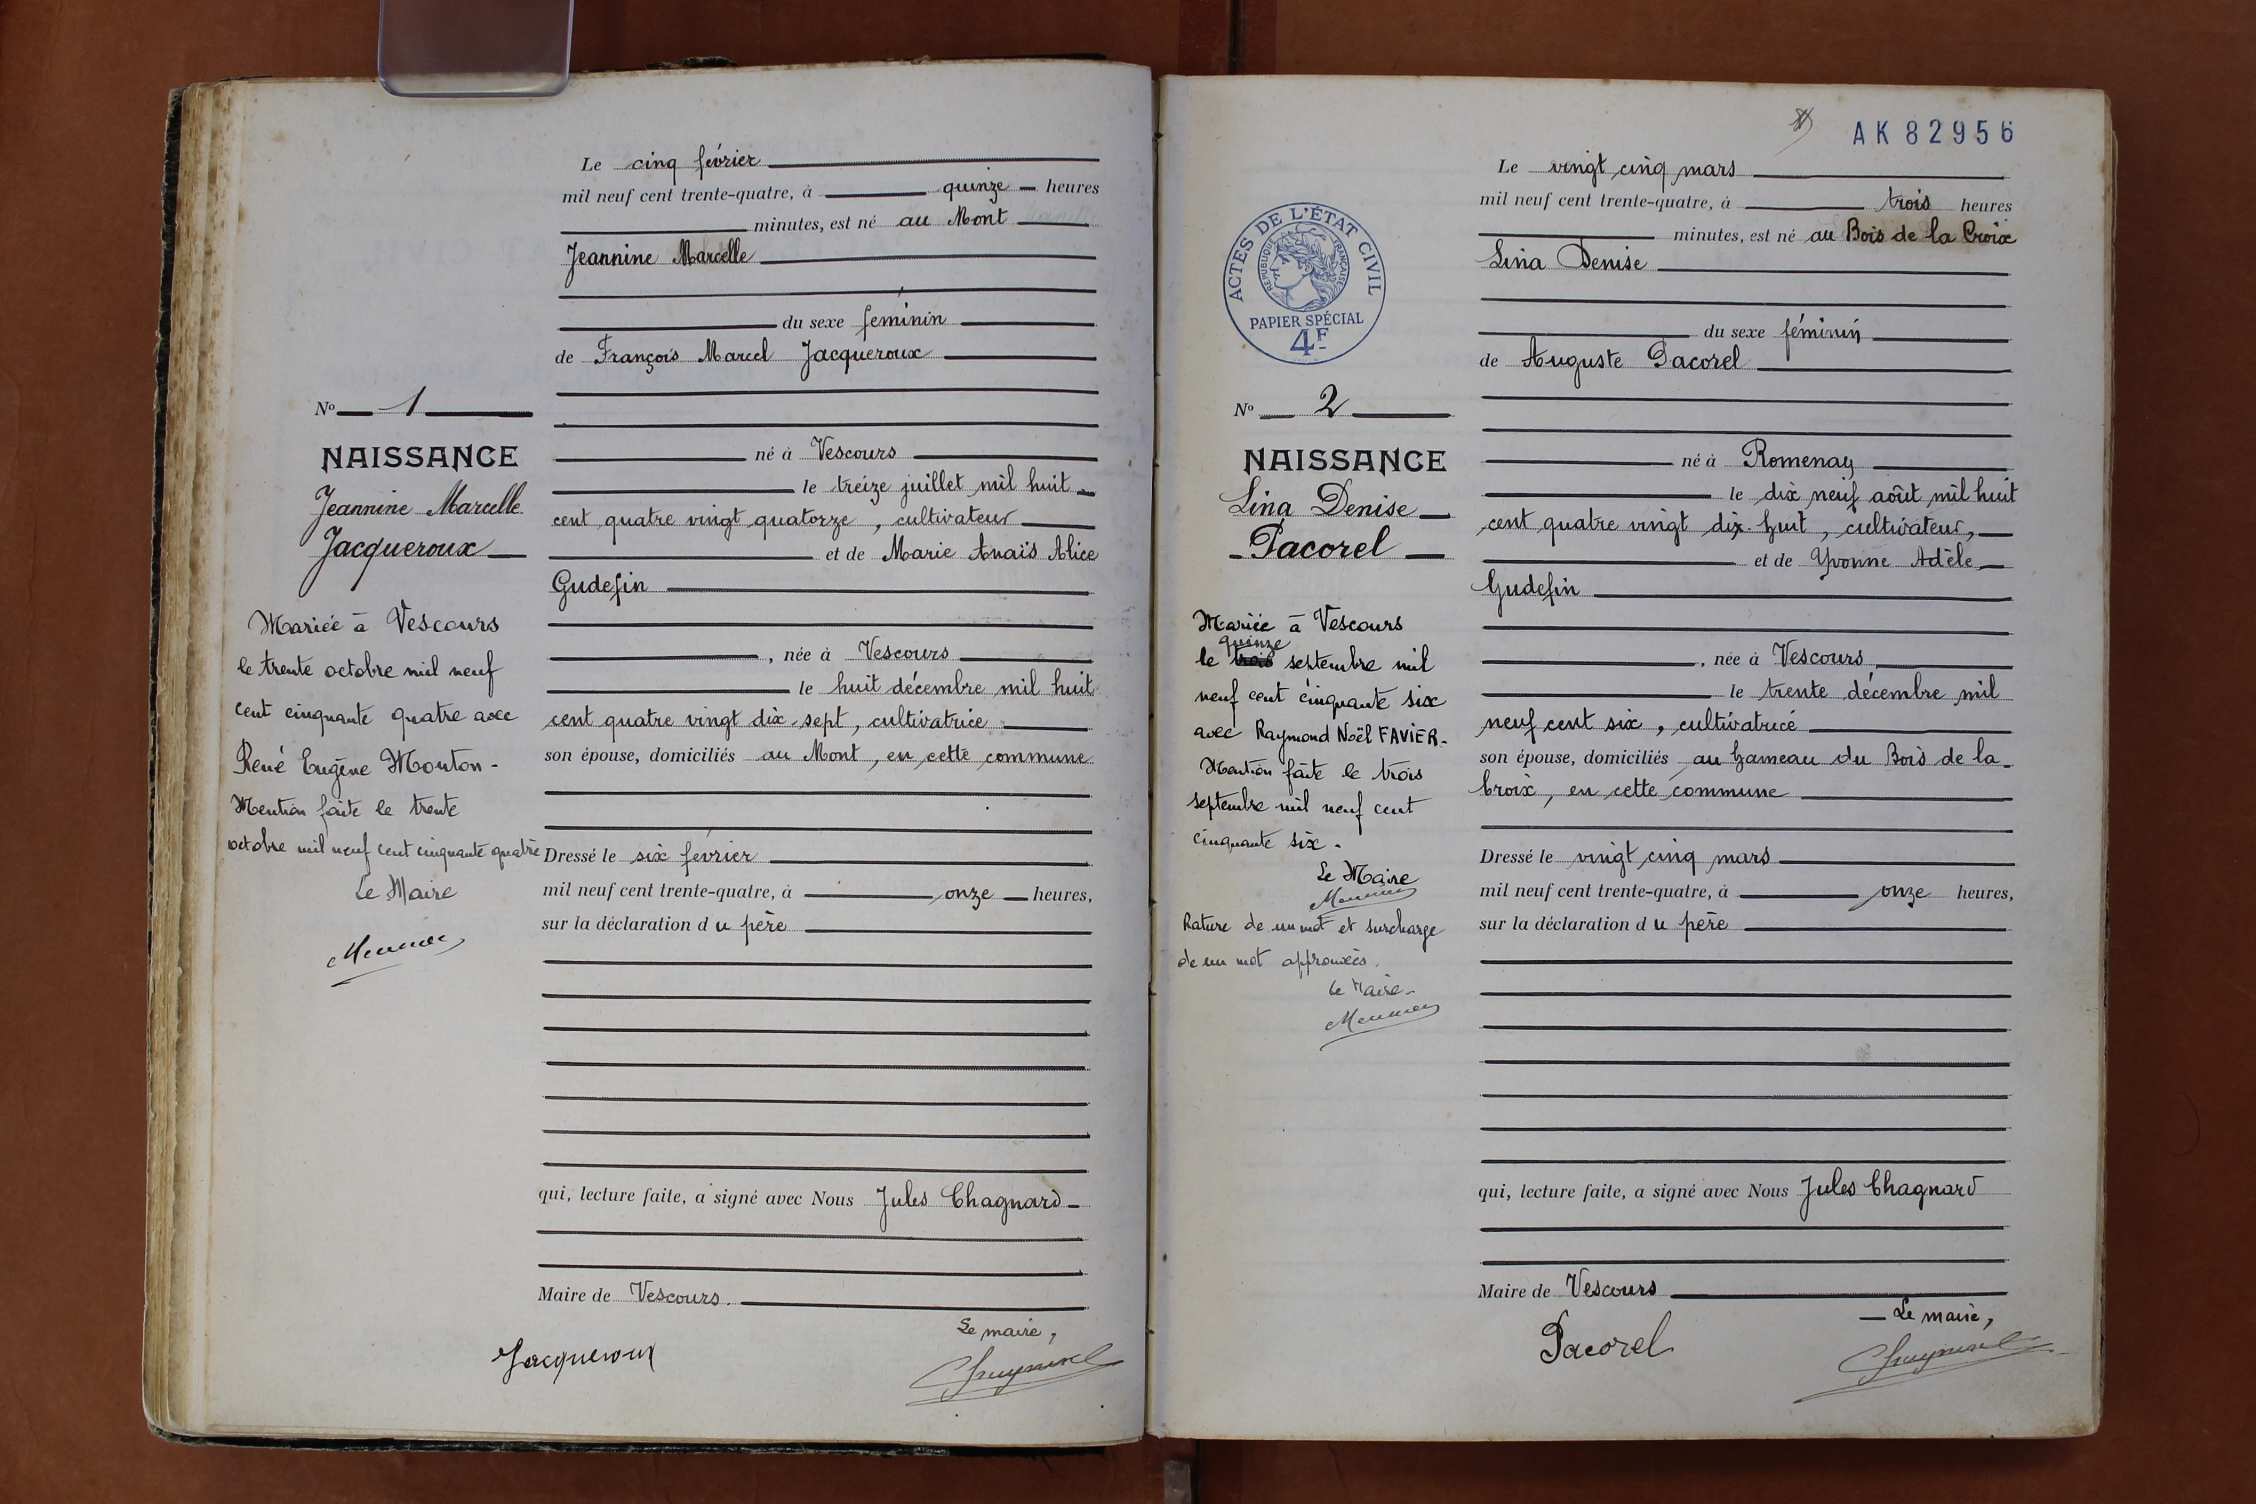 Le cinq février
mil neuf cent trente-quatre, à quinze heures
minutes, est né au Mont
Jeannine Marcelle
du sexe féminin
de François Marcel Jacqueroux
né à Vescours
le treize juillet mil huit
cent quatre vingt quatorze, cultivateur
et de Marie Anaïs Alice
Gudefin
, née à Vescours
le huit décembre mil huit
cent quatre vingt dix-sept, cultivatrice
son épouse, domiciliés au Mont, en cette commune
Dressé le six février
mil neuf cent trente-quatre, à onze heures,
sur la déclaration du père
qui, lecture faite, a signé avec Nous Jules Chagnard
Maire de Vescours.
Le maire,
Jacqueroux
No 1
NAISSANCE
Jeannine Marcelle
Jacqueroux
Mariée à Vescours
le trente octobre mil neuf
cent cinquante quatre avec
René Eugène Monton -
Mention faite le trente
octobre mil neuf cent cinquante quatre
Le Maire
AK 82956
Le vingt cinq mars
mil neuf cent trente-quatre, à trois heures
minutes, est né au Bois de la Croix
Lina Denise
du sexe féminin
de Auguste Pacorel
né à Romenay
le dix neuf août mil huit
cent quatre vingt dix-huit, cultivateur,
et de Yvonne Adèle
Gudefin
, née à Vescours
le trente décembre mil
neuf cent six, cultivatrice
son épouse, domiciliés au hameau du Bois de la
Croix, en cette commune
Dressé le vingt cinq mars
mil neuf cent trente-quatre, à onze heures,
sur la déclaration du père
qui, lecture faite, a signé avec Nous Jules Chagnard
Maire de Vescours
Le maire,
Pacorel
ACTES DE L'ÉTAT CIVIL
RÉPUBLIQUE FRANÇAISE
PAPIER SPÉCIAL
4F
No 2
NAISSANCE
Lina Denise
Pacorel
Mariée à Vescours
quinze
le trois septembre mil
neuf cent cinquante six
avec Raymond Noël FAVIER-
Mention faite le trois
septembre mil neuf cent
cinquante six.
Le Maire
Rature de un mot et surcharge
de un mot approuvés.
Le Maire